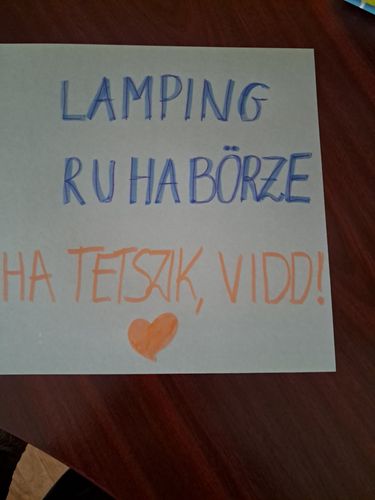 LAMPING
RUHABÖRZE
HA TETSZIK, VIDD!